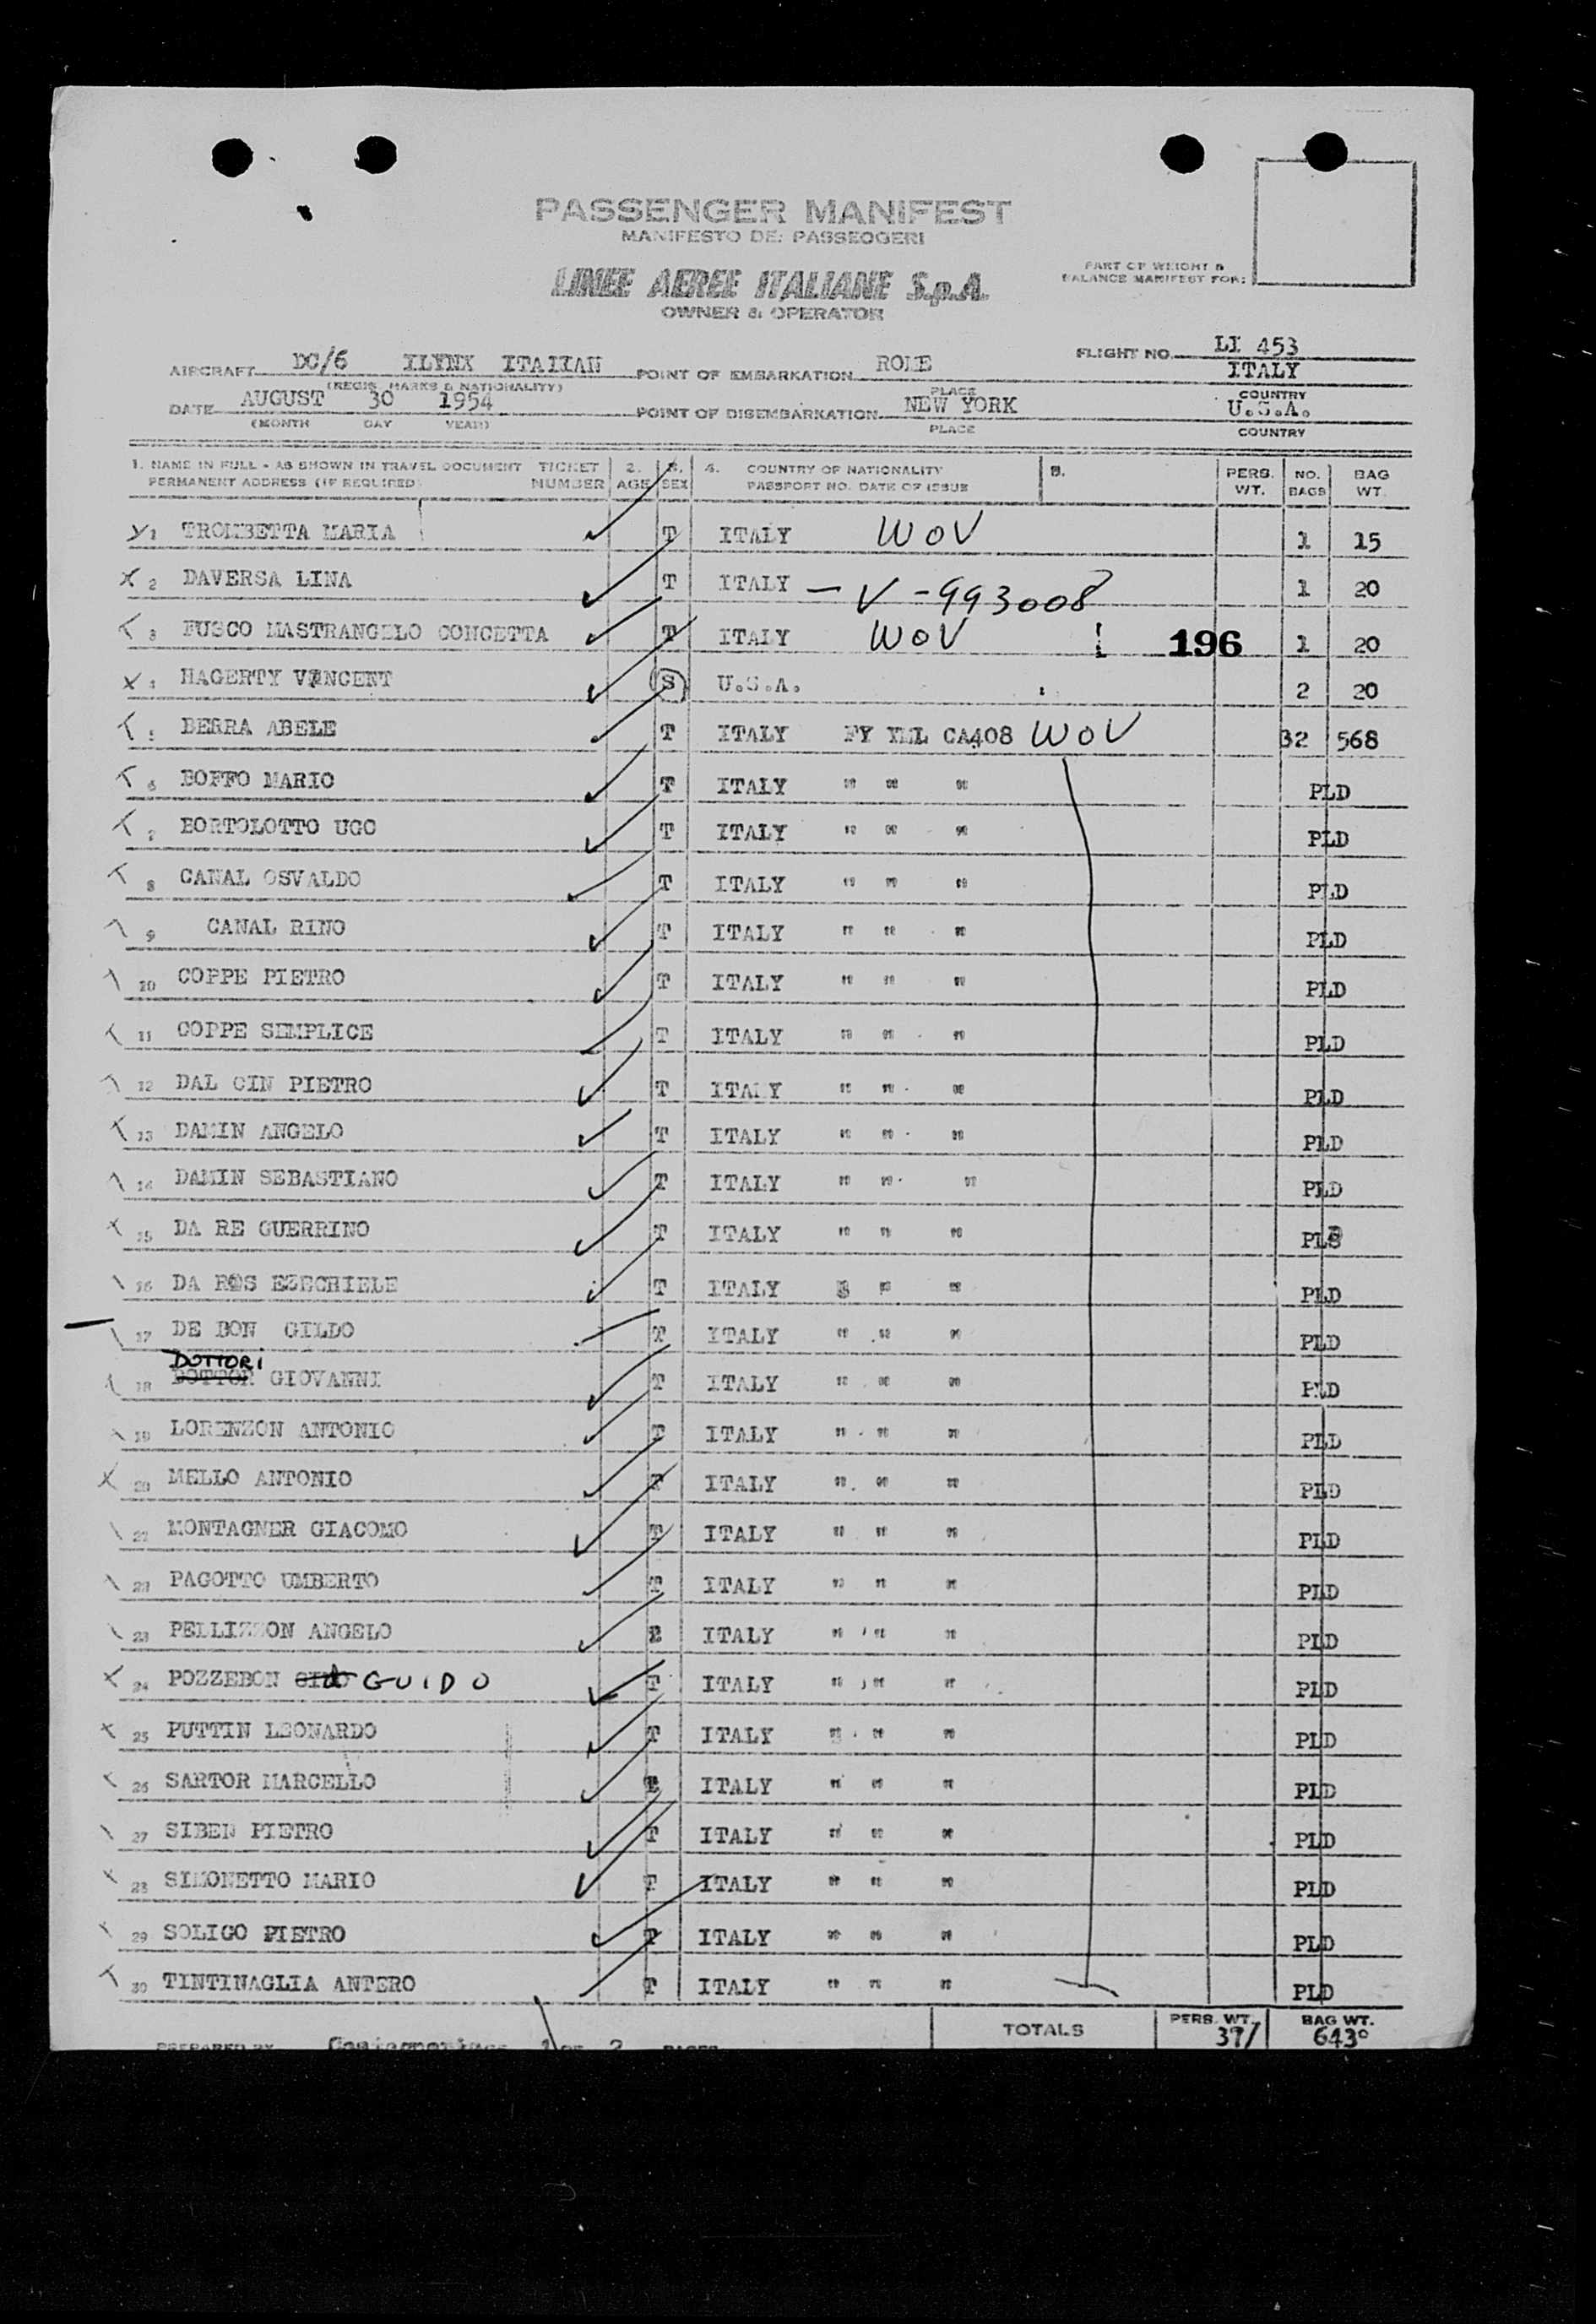 PASSENGER MANIFEST
MANIFESTO DEI PASSEGGERI
LINEE AEREE ITALIANE S.p.A.
OWNER & OPERATOR
PART OF WEIGHT &
BALANCE MANIFEST FOR:
AIRCRAFT DC/6 ILYNX ITALIAN POINT OF EMBARKATION ROME FLIGHT NO. LI 453
ITALY
(REGIS. MARKS & NATIONALITY) PLACE COUNTRY
DATE AUGUST 30 1954 POINT OF DISEMBARKATION NEW YORK U.S.A.
(MONTH DAY YEAR) PLACE COUNTRY
1. NAME IN FULL - AS SHOWN IN TRAVEL DOCUMENT TICKET 2. 3. 4. COUNTRY OF NATIONALITY 5. PERS. NO. BAG
PERMANENT ADDRESS (IF REQUIRED) NUMBER AGE SEX PASSPORT NO. DATE OF ISSUE WT. BAGS WT.
1 TROMBETTA MARIA T ITALY WOV 1 15
2 DAVERSA LINA T ITALY - V-993008 1 20
3 FUSCO MASTRANGELO CONCETTA T ITALY WOV 196 1 20
4 HAGERTY VINCENT S U.S.A. 2 20
5 BERRA ABELE T ITALY FY XLL CA408 WOV 32 568
6 BOFFO MARIO T ITALY " " " PLD
7 BORTOLOTTO UGO T ITALY " " " PLD
8 CANAL OSVALDO T ITALY " " " PLD
9 CANAL RINO T ITALY " " " PLD
10 COPPE PIETRO T ITALY " " " PLD
11 COPPE SEMPLICE T ITALY " " " PLD
12 DAL CIN PIETRO T ITALY " " " PLD
13 DAMIN ANGELO T ITALY " " " PLD
14 DAMIN SEBASTIANO T ITALY " " " PLD
15 DA RE GUERRINO T ITALY " " " PLD
16 DA ROS EZECHIELE T ITALY " " " PLD
17 DE BON GILDO T ITALY " " " PLD
DOTTORI
18 DOTTOR GIOVANNI T ITALY " " " PLD
19 LORENZON ANTONIO T ITALY " " " PLD
20 MELLO ANTONIO T ITALY " " " PLD
21 MONTAGNER GIACOMO T ITALY " " " PLD
22 PAGOTTO UMBERTO T ITALY " " " PLD
23 PELLIZZON ANGELO ITALY " " " PLD
24 POZZEBON GUIDO T ITALY " " " PLD
25 PUTTIN LEONARDO T ITALY " " " PLD
26 SARTOR MARCELLO ITALY " " " PLD
27 SIBEN PIETRO T ITALY " " " PLD
28 SIMONETTO MARIO T ITALY " " " PLD
29 SOLIGO PIETRO T ITALY " " " PLD
30 TINTINAGLIA ANTERO T ITALY " " " PLD
TOTALS PERS. WT. BAG WT.
643
PREPARED BY 1 OF 2 PAGES